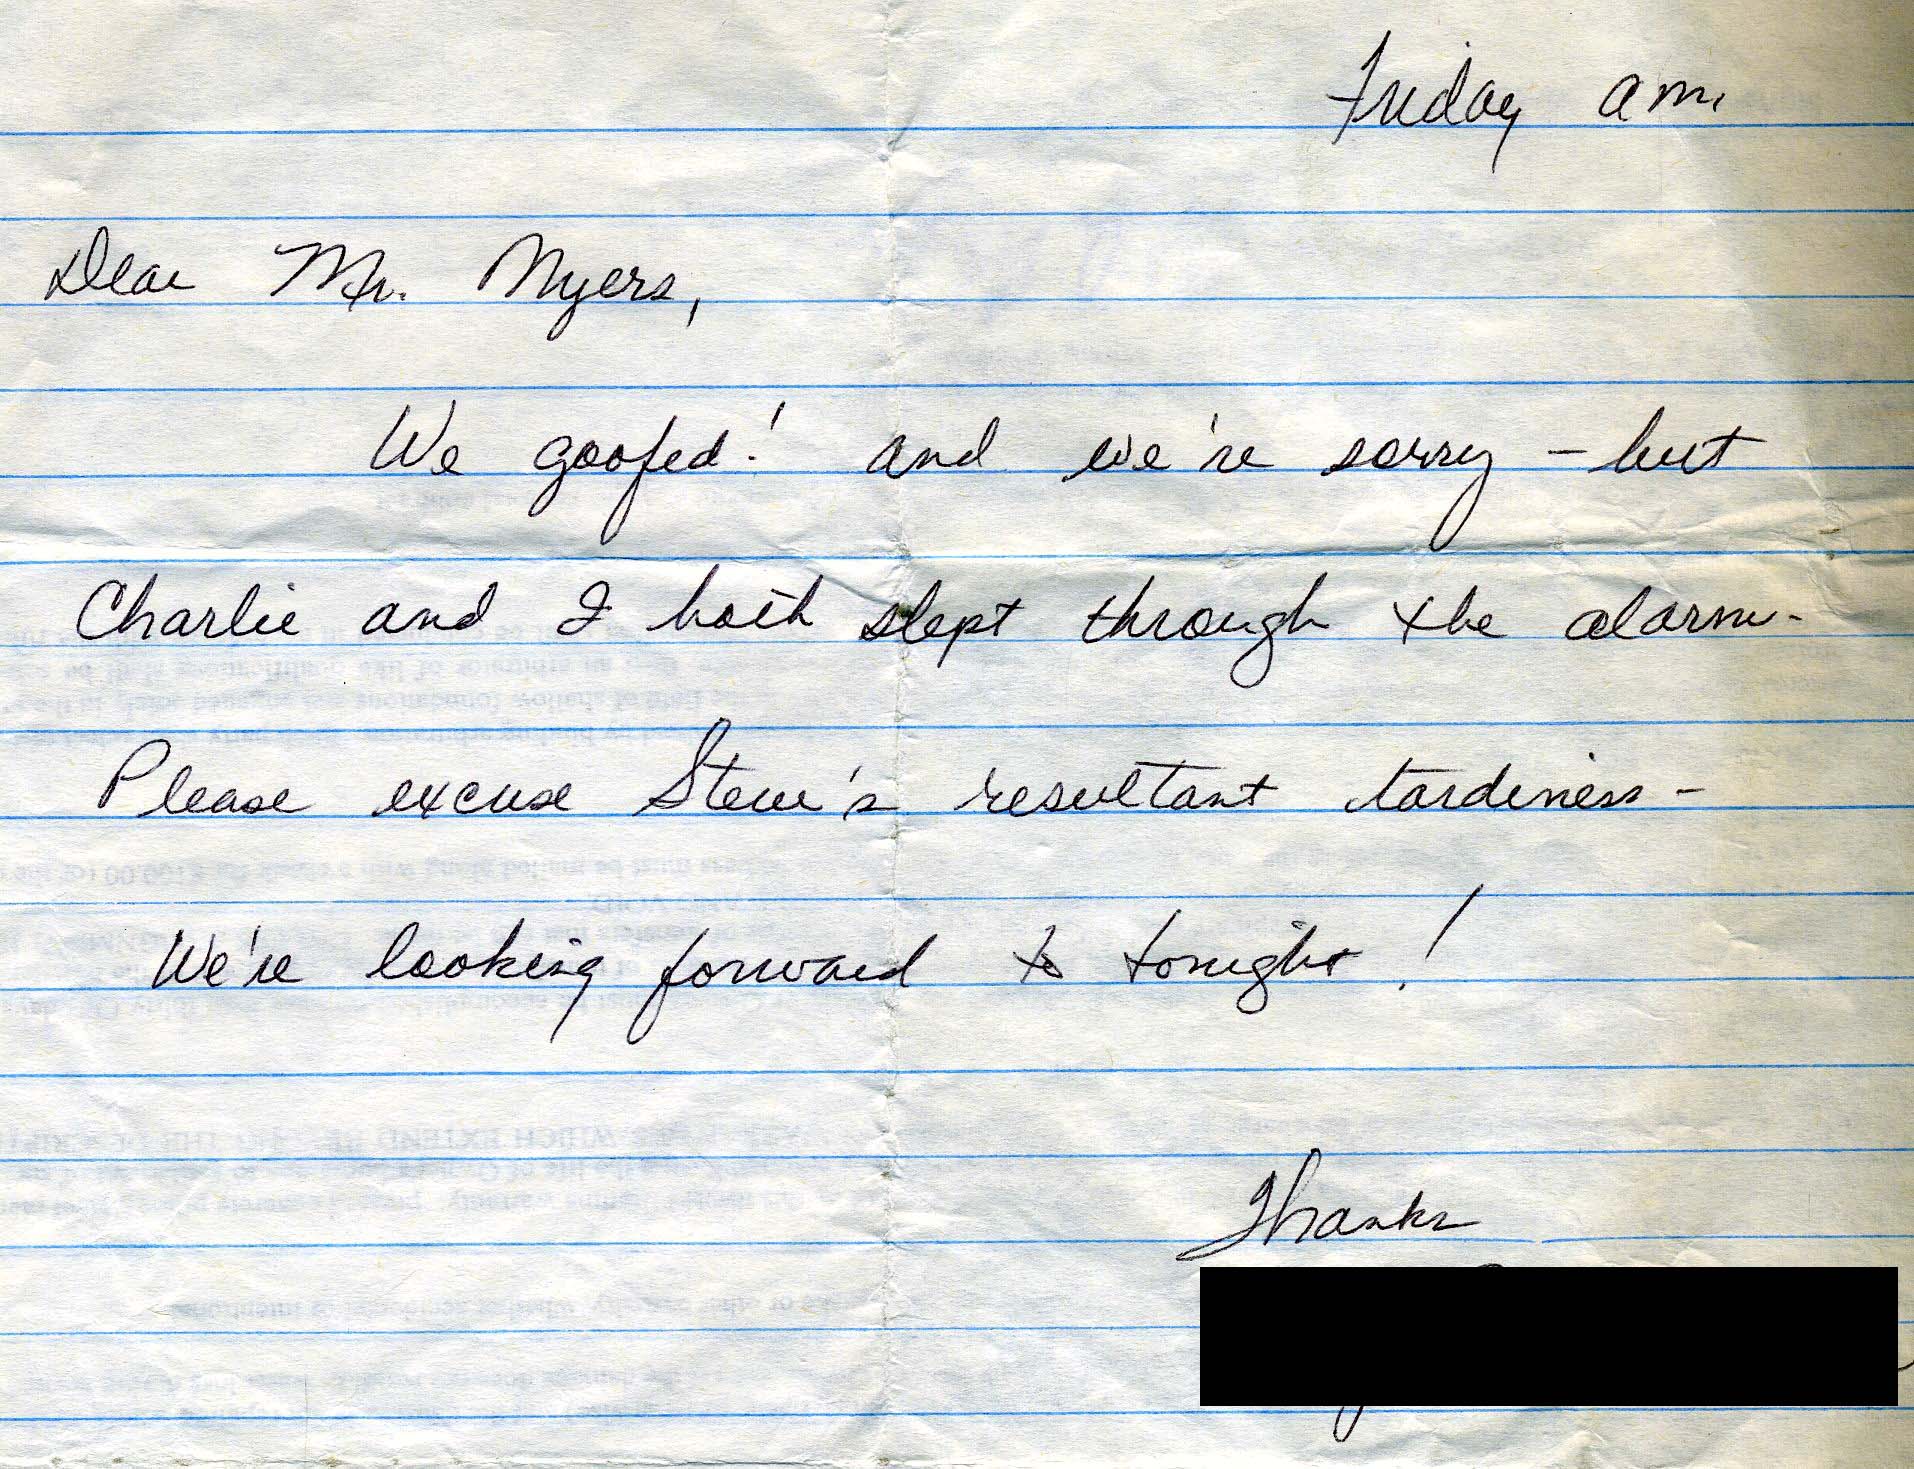 Friday am.
Dear Mr. Myers,
We goofed! and we're sorry - but
Charlie and I both slept through the alarm.
Please excuse Steve's resultant tardiness -
We're looking forward to tonight!
Thanks